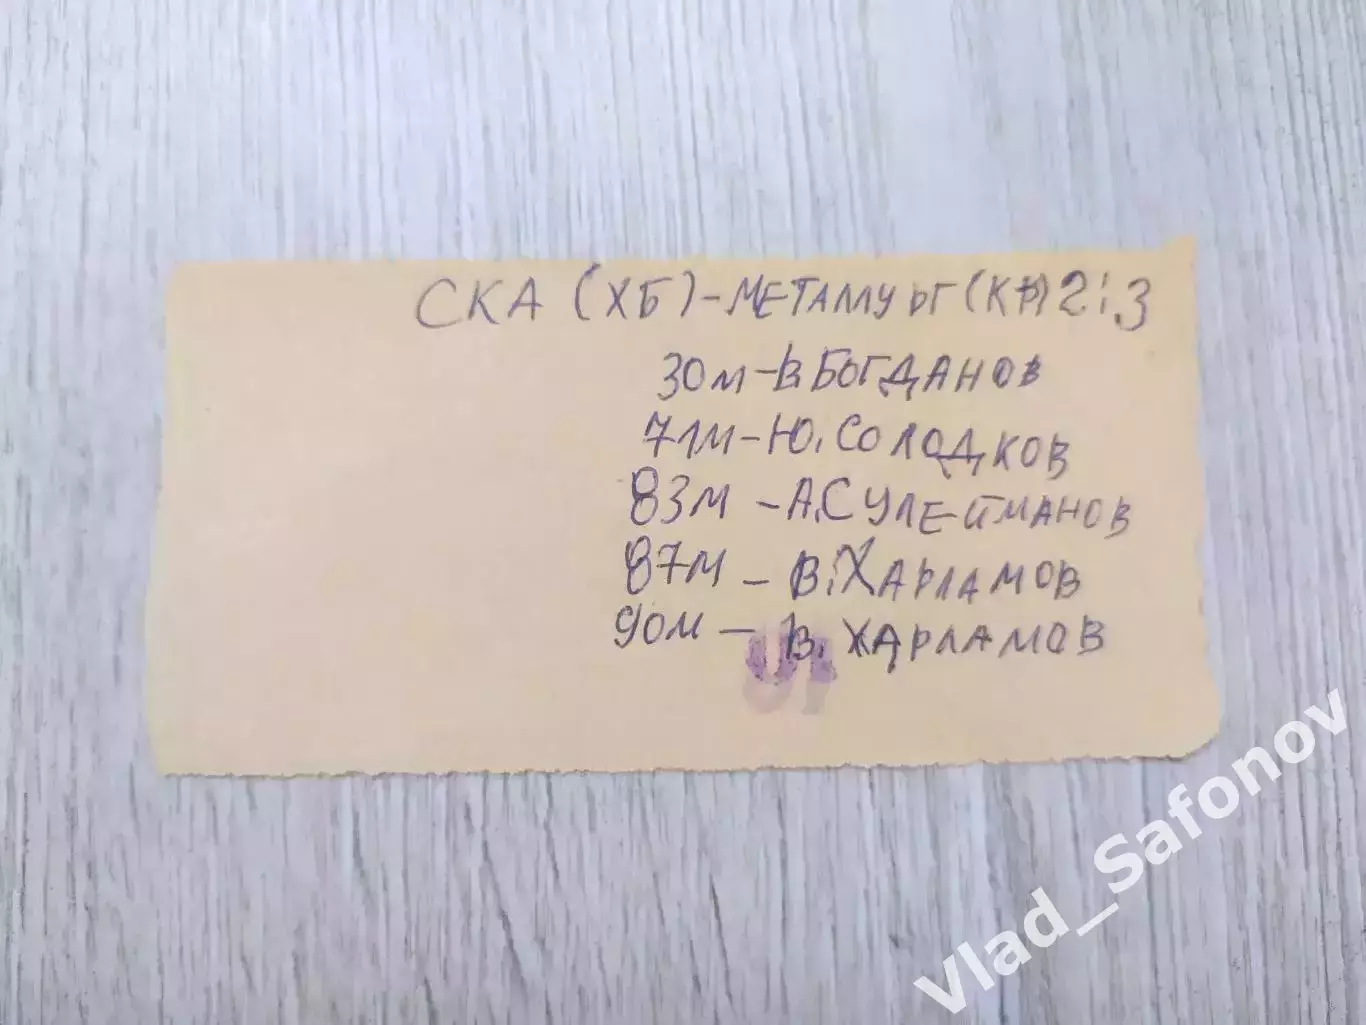 СКА (ХБ)-МЕТАЛУРГ(КР) 2:3
30М-В.БОГДАНОВ
71М-Ю.СОЛОДКОВ
83М-А.СУЛЕЙМАНОВ
87М-В.ХАРЛАМОВ
90М-В.ХАРЛАМОВ
Vlad_Safonov